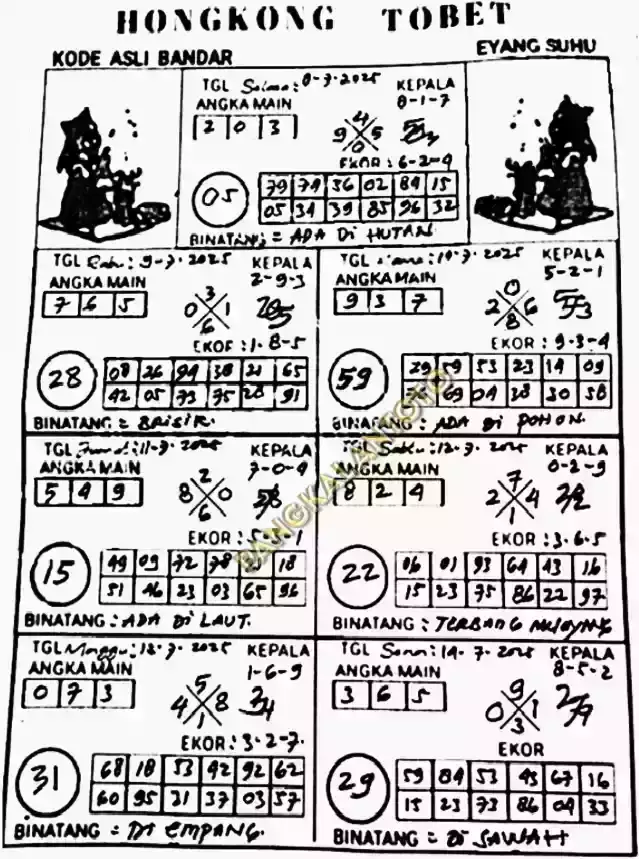 HONGKONG TOBET
KODE ASLI BANDAR
EYANG SUHU
TGL Selasa: 8-7-2025 KEPALA
ANGKA MAIN 8-1-7
2 0 3
4
9 5
0
EKOR: 6-2-4
05
79 74 36 02 84 15
05 34 39 85 96 32
BINATANG = ADA Di HUTAN
TGL Rabu: 9-7-2025 KEPALA
ANGKA MAIN 2-9-3
7 6 5
3
0 1
6
EKOR: 1-8-5
28
08 26 94 38 21 65
42 05 73 75 28 91
BINATANG = BRISIK.
TGL 10-7-2025 KEPALA
ANGKA MAIN 5-2-1
9 3 7
0
2 6
8
EKOR: 9-3-4
59
29 59 53 23 14 09
69 04 38 30 58
BINATANG: ADA Di POHON.
TGL Jumat: 11-7-2025 KEPALA
ANGKA MAIN 7-0-4
5 4 9
2
8 0
6
58
EKOR: 5-3-1
15
49 09 72 78 18
51 46 23 03 65 96
BINATANG: ADA Di LAUT.
TGL Sabtu: 12-7-2025 KEPALA
ANGKA MAIN 0-2-9
8 2 4
7
2 4
1
EKOR: 3-6-5
22
06 01 93 64 43 16
15 23 75 86 22 97
BINATANG: TERBANG
TGL Minggu: 13-7-2025 KEPALA
ANGKA MAIN 1-6-9
0 7 3
5
4 8
1
EKOR: 3-2-7.
31
68 18 53 42 92 62
60 95 31 37 03 57
BINATANG = Di EMPANG.
TGL Senin: 14-7-2025 KEPALA
ANGKA MAIN 8-5-2
3 6 5
9
0 1
3
EKOR
29
59 84 53 43 67 16
15 23 73 86 04 33
BINATANG = Di SAWAH
PANGKALANTOTO